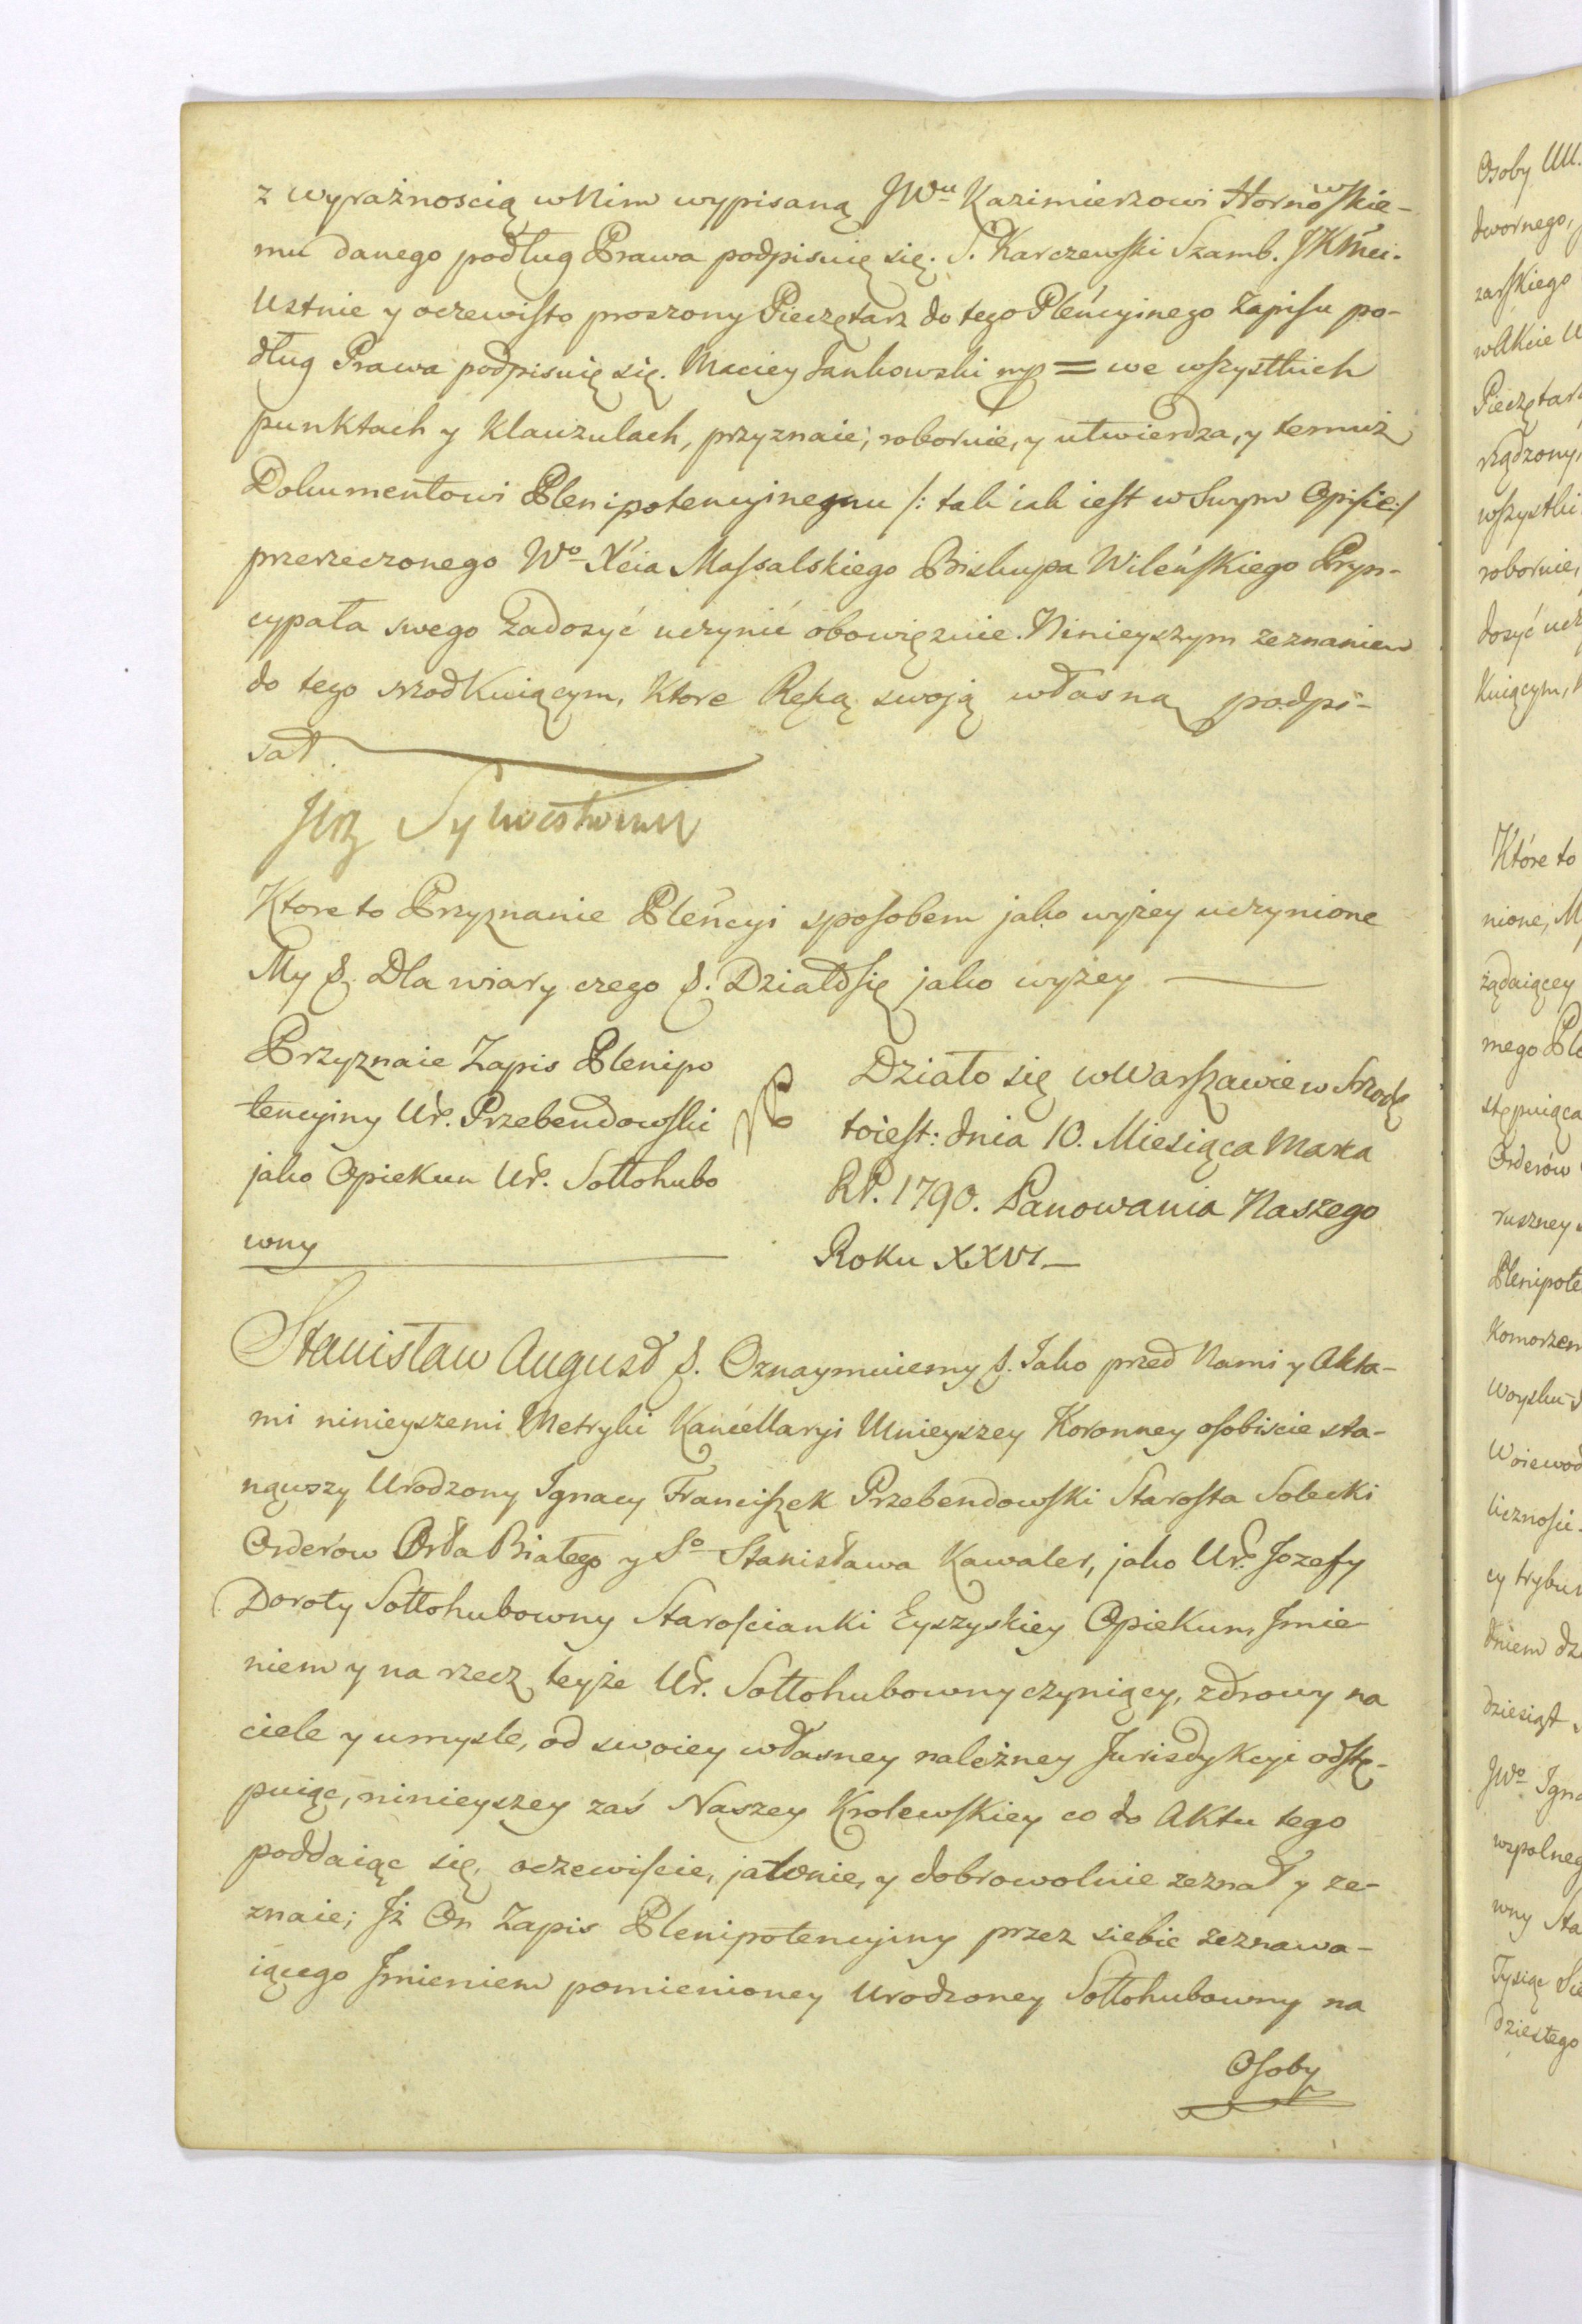 z wyraźnoscią w Nim wypisaną JWu Kazimierzowi Hornowskie-
mu danego podług Prawa podpisuię się. S. Karczewski Szamb. JKMci.
Ustnie y oczewisto proszony Pieczętarz do tego Pleńcyinego Zapisu po-
dług Prawa podpisuię się. Maciey Jankowski mp = we wszystkich
punktach y klauzulach, przyznaie, roboruie, y utwierdza, y temuż
Dokumentowi Plenipotencyinemu /: tak iak iest w Swym Opisie :/
przerzeczonego Wo Xcia Massalskiego Biskupa Wileńskiego Pryn-
cypała swego zadosyć uczynić obowięzuie. Ninieyszym zeznaniem
do tego srzodkuiącym, Ktore Ręką swoją własną podpi-
sał.
Ktore to Przyznanie Pleńcyi sposobem jako wyżey uczynione
My &. Dla wiary czego &. Działo się jako wyżey
Przyznaie Zapis Plenipo
tencyiny Ur. Przebendowski
jako Opiekun Ur. Sołłohubo
wny
Działo się w Warszawie w Srzodę
toiest: dnia 10. Miesiąca Marca
RP. 1790. Panowania Naszego
Roku XXVI
Stanisław August &. Oznaymuiemy &. Iako przed Nami y Akta-
mi ninieyszemi Metryki Kancellaryi Mnieyszey Koronney osobiscie sta-
nąwszy Urodzony Ignacy Franciszek Przebendowski Starosta Solecki
Orderów Orła Białego y So Stanisława Kawaler, jako Ur. Jozefy
Doroty Sołłohubowny Starościanki Eyszyskiey Opiekun, Jmie
niem y na rzecz teyże Ur. Sołłohubowny czyniący, zdrowy na
ciele y umysle, od swoiey własney należney Jurisdykcyi odstę-
puiąc, ninieyszey zaś Naszey Krolewskiey co do Aktu tego
poddaiąc się, oczewiście, jawnie, y dobrowolnie zeznał y ze-
znaie; Jż On Zapis Plenipotencyiny przez siebie zeznawa-
iącego Jmieniem pomienioney Urodzoney Sołłohubowny na
Osoby
Osoby UU.
dwornego,
zarskiego
w Akcie
Pieczętar
rządzony
wszystki
roboruie,
dosyć ucz
kuiącym,
Które to
nione, M
żądaiącey
mego Ple
stępuiąca
Orderów
ruszney
Plenipote
Komorzem
Woysku
Woiewod
liczności
cy trybun
dniem dz
dziesiąt
JWo Igna
wspolneg
wny Sta
Tysiąc Sie
dziestego